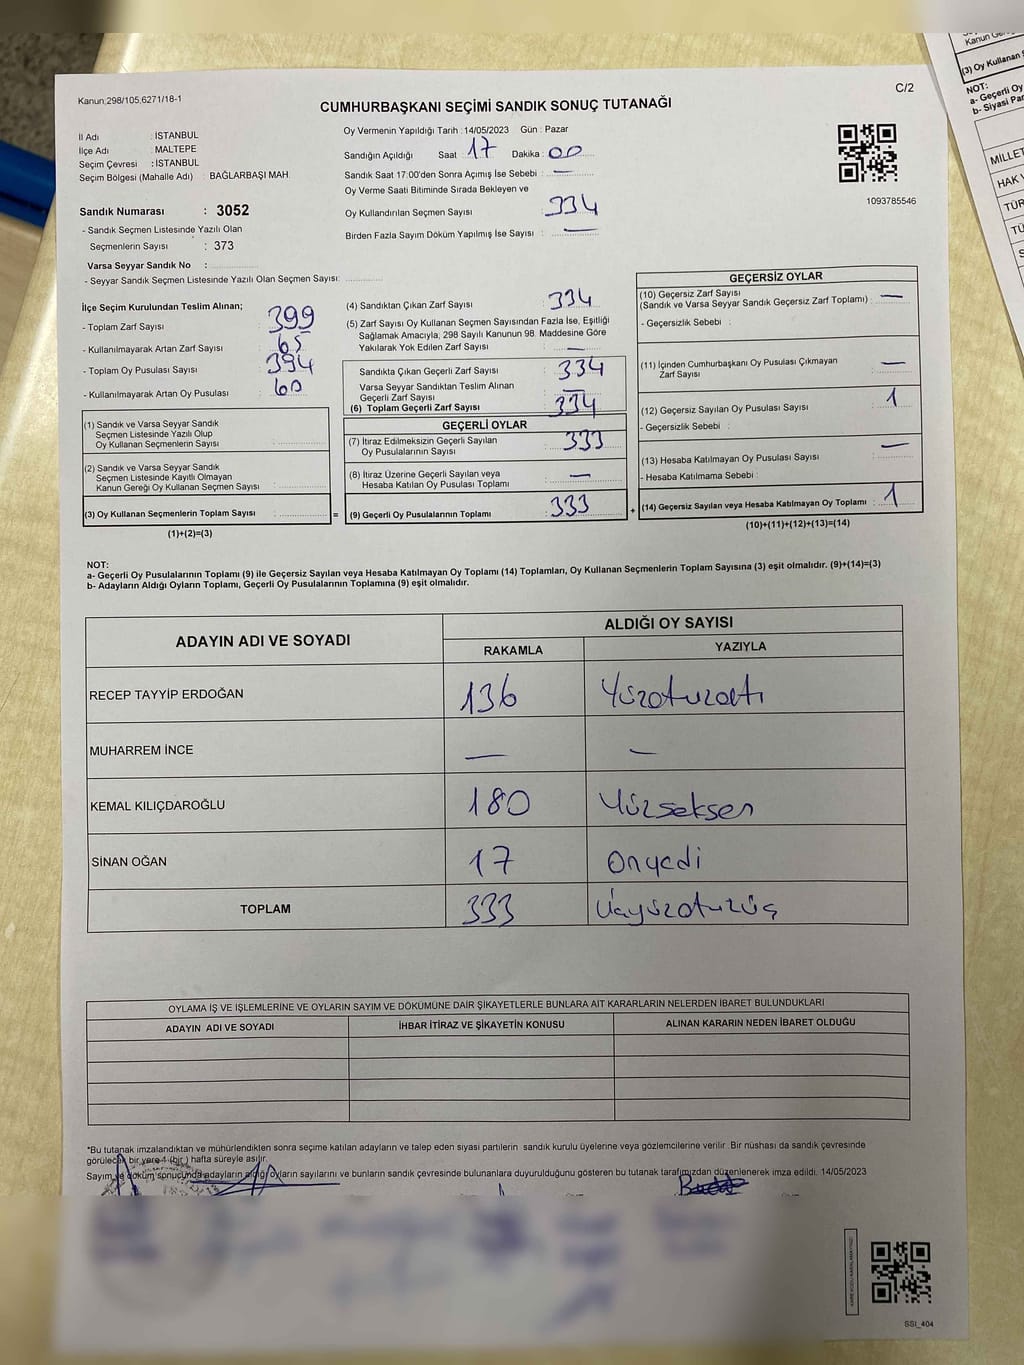 Kanun;298/105,6271/18-1
C/2
CUMHURBAŞKANI SEÇİMİ SANDIK SONUÇ TUTANAĞI
İl Adı : İSTANBUL
İlçe Adı : MALTEPE
Seçim Çevresi : İSTANBUL
Seçim Bölgesi (Mahalle Adı) BAĞLARBAŞI MAH.
Sandık Numarası : 3052
- Sandık Seçmen Listesinde Yazılı Olan
Seçmenlerin Sayısı : 373
Varsa Seyyar Sandık No :
- Seyyar Sandık Seçmen Listesinde Yazılı Olan Seçmen Sayısı:
Oy Vermenin Yapıldığı Tarih :14/05/2023 Gün : Pazar
Sandığın Açıldığı Saat 17 Dakika : 00
Sandık Saat 17:00'den Sonra Açımış İse Sebebi : —
Oy Verme Saati Bitiminde Sırada Bekleyen ve
Oy Kullandırılan Seçmen Sayısı : 334
Birden Fazla Sayım Döküm Yapılmış İse Sayısı : —
1093785546
İlçe Seçim Kurulundan Teslim Alınan;
- Toplam Zarf Sayısı : 399
- Kullanılmayarak Artan Zarf Sayısı : 65
- Toplam Oy Pusulası Sayısı : 394
- Kullanılmayarak Artan Oy Pusulası : 60
(1) Sandık ve Varsa Seyyar Sandık
Seçmen Listesinde Yazılı Olup
Oy Kullanan Seçmenlerin Sayısı :
(2) Sandık ve Varsa Seyyar Sandık
Seçmen Listesinde Kayıtlı Olmayan
Kanun Gereği Oy Kullanan Seçmen Sayısı :
(3) Oy Kullanan Seçmenlerin Toplam Sayısı :
(1)+(2)=(3)
=
(4) Sandıktan Çıkan Zarf Sayısı : 334
(5) Zarf Sayısı Oy Kullanan Seçmen Sayısından Fazla İse, Eşitliği
Sağlamak Amacıyla, 298 Sayılı Kanunun 98. Maddesine Göre
Yakılarak Yok Edilen Zarf Sayısı : —
Sandıkta Çıkan Geçerli Zarf Sayısı : 334
Varsa Seyyar Sandıktan Teslim Alınan
Geçerli Zarf Sayısı : —
(6) Toplam Geçerli Zarf Sayısı : 334
GEÇERLİ OYLAR
(7) İtiraz Edilmeksizin Geçerli Sayılan
Oy Pusulalarının Sayısı : 333
(8) İtiraz Üzerine Geçerli Sayılan veya
Hesaba Katılan Oy Pusulası Toplamı : —
(9) Geçerli Oy Pusulalarının Toplamı : 333
+
GEÇERSİZ OYLAR
(10) Geçersiz Zarf Sayısı
(Sandık ve Varsa Seyyar Sandık Geçersiz Zarf Toplamı) : —
- Geçersizlik Sebebi :
(11) İçinden Cumhurbaşkanı Oy Pusulası Çıkmayan
Zarf Sayısı : —
(12) Geçersiz Sayılan Oy Pusulası Sayısı : 1
- Geçersizlik Sebebi :
(13) Hesaba Katılmayan Oy Pusulası Sayısı : —
- Hesaba Katılmama Sebebi :
(14) Geçersiz Sayılan veya Hesaba Katılmayan Oy Toplamı : 1
(10)+(11)+(12)+(13)=(14)
NOT:
a- Geçerli Oy Pusulalarının Toplamı (9) ile Geçersiz Sayılan veya Hesaba Katılmayan Oy Toplamı (14) Toplamları, Oy Kullanan Seçmenlerin Toplam Sayısına (3) eşit olmalıdır. (9)+(14)=(3)
b- Adayların Aldığı Oyların Toplamı, Geçerli Oy Pusulalarının Toplamına (9) eşit olmalıdır.
ADAYIN ADI VE SOYADI
ALDIĞI OY SAYISI
RAKAMLA YAZIYLA
RECEP TAYYİP ERDOĞAN 136 Yüzotuzaltı
MUHARREM İNCE — —
KEMAL KILIÇDAROĞLU 180 Yüzseksen
SİNAN OĞAN 17 Onyedi
TOPLAM 333 Üçyüzotuzüç
OYLAMA İŞ VE İŞLEMLERİNE VE OYLARIN SAYIM VE DÖKÜMÜNE DAİR ŞİKAYETLERLE BUNLARA AİT KARARLARIN NELERDEN İBARET BULUNDUKLARI
ADAYIN ADI VE SOYADI İHBAR İTİRAZ VE ŞİKAYETİN KONUSU ALINAN KARARIN NEDEN İBARET OLDUĞU
*Bu tutanak imzalandıktan ve mühürlendikten sonra seçime katılan adayların ve talep eden siyasi partilerin sandık kurulu üyelerine veya gözlemcilerine verilir. Bir nüshası da sandık çevresinde
görülecek bir yere 1 (bir ) hafta süreyle asılır.
Sayım ve döküm sonucunda adayların aldığı oyların sayılarını ve bunların sandık çevresinde bulunanlara duyurulduğunu gösteren bu tutanak tarafımızdan düzenlenerek imza edildi. 14/05/2023
SSI_404
(3) Oy Kullanan
NOT:
a- Geçerli Oy
b- Siyasi
MİLLET
HAK